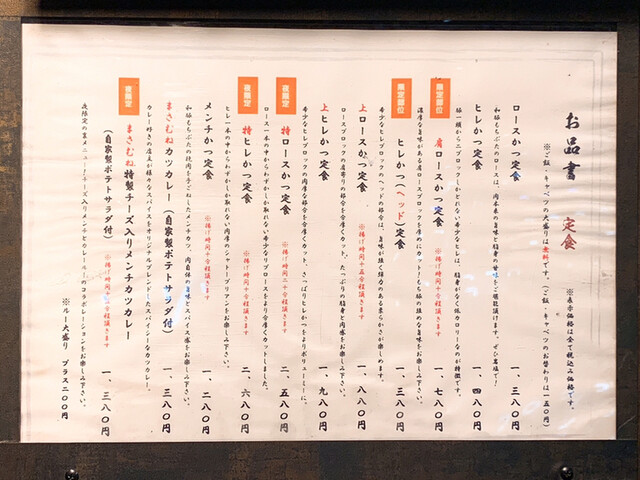 お品書 定食
※表示価格は全て税込み価格です。
※ご飯・キャベツの大盛りは無料です。(ご飯・キャベツのお替わりは一五〇円)
ロースかつ定食 一、三八〇円
和豚もちぶたのロースは、肉本来の旨味と脂身の甘味をご堪能頂けます。ぜひ岩塩で!
ヒレかつ定食 一、四八〇円
豚一頭から二ブロックしかとれない希少なヒレは、脂身がなく低カロリーなのが特徴です。
限定部位
肩ロースかつ定食 ※揚げ時間十分程頂きます 一、七八〇円
濃厚な旨味がある肩ロースブロックを厚めにカット!もち豚の強めな旨味をお楽しみ下さい。
限定部位
ヒレかつ(ヘッド)定食 一、三八〇円
希少なヒレブロックのヘッドの部分は、旨味が強く弾力のある柔らかさが特徴です。
上ロースかつ定食 ※揚げ時間十五分程頂きます 一、八八〇円
ロースブロックの肩寄りの部分を分厚くカット。たっぷりの脂身と肉感をお楽しみ下さい。
上ヒレかつ定食 一、九八〇円
希少なヒレブロックの肉厚な部分を分厚くカット、さっぱりヒレかつをよりボリューミーに。
夜限定
特ロースかつ定食 ※揚げ時間二十分程頂きます 二、五八〇円
ロース一本の中からわずかしか取れない希少なリブロースをより分厚くカットしました。
夜限定
特ヒレかつ定食 ※揚げ時間十分程頂きます 二、六八〇円
ヒレ一本の中からわずかしか取れない肉厚のシャトーブリアンをお楽しみ下さい。
メンチかつ定食 ※揚げ時間十分程頂きます 一、二八〇円
和豚もちぶたの挽肉を手ごねしたメンチカツ。肉自体の旨味とスパイス感をお楽しみ下さい。
まさむねカツカレー(自家製ポテトサラダ付) 一、三八〇円
カレー好きの店主が様々なスパイスをオリジナルブレンドしたスパイシーなカツカレー。
夜限定
まさむね特製チーズ入りメンチカツカレー
(自家製ポテトサラダ付) ※揚げ時間十二分程頂きます 一、三八〇円
夜限定の裏メニュー!チーズ入りメンチとカレールーのコラボレーションをお楽しみ下さい。
※ルー大盛り プラス二〇〇円